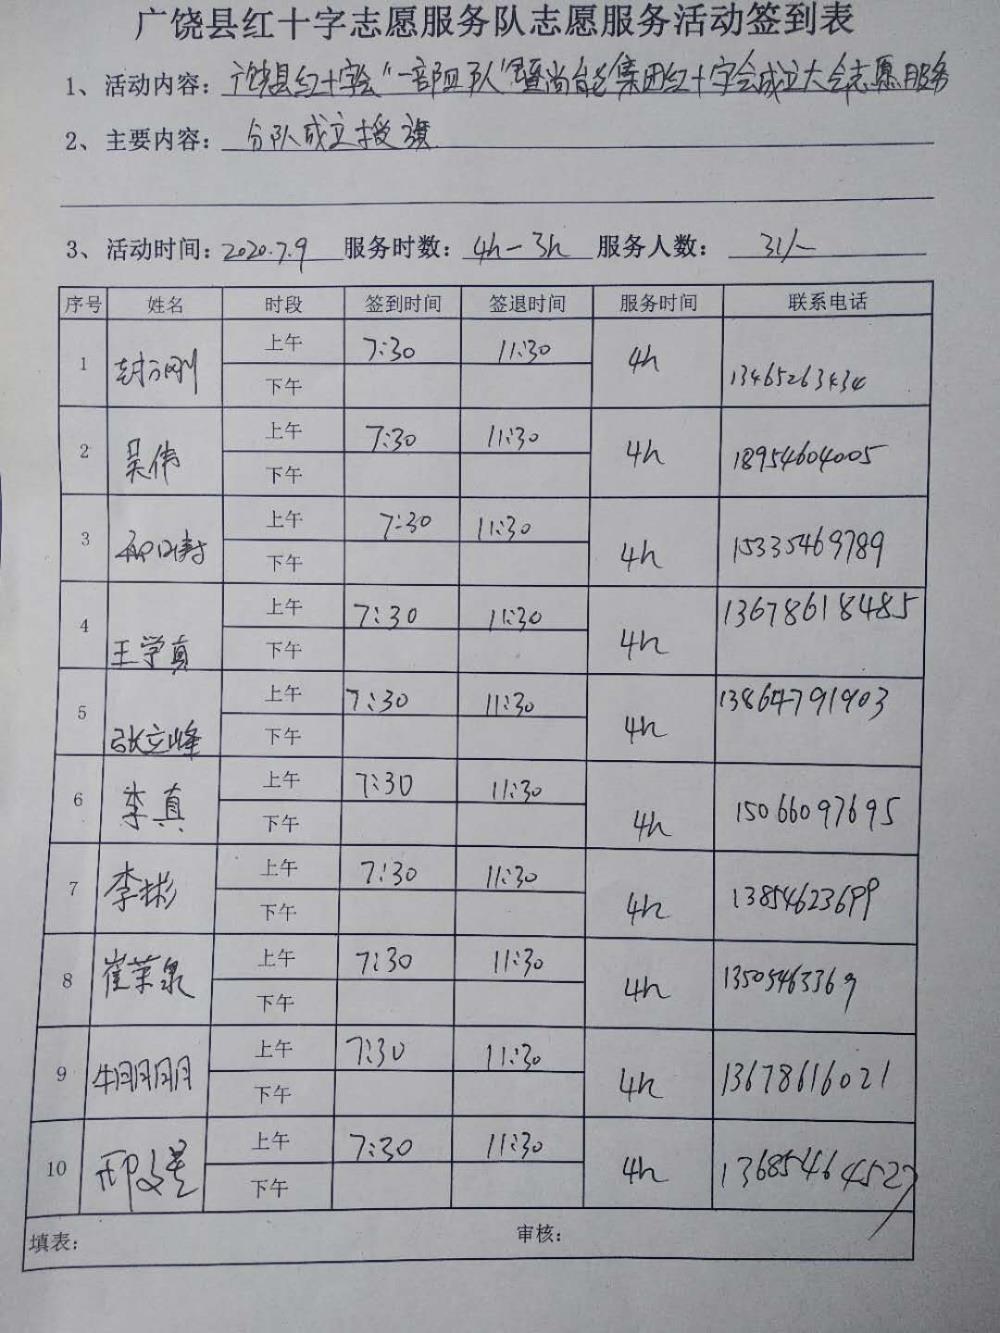 广饶县红十字志愿服务队志愿服务活动签到表
1、活动内容：广饶县红十字会“一部四队”暨尚能集团红十字会成立大会志愿服务
2、主要内容：分队成立授旗
3、活动时间：2020.7.9 服务时数：4h-3h 服务人数：31人
序号 姓名 时段 签到时间 签退时间 服务时间 联系电话
1 上午 7:30 11:30 4h 13465263434
下午
2 吴伟 上午 7:30 11:30 4h 18954604005
下午
3 上午 7:30 11:30 4h 15335469789
下午
4 王学真 上午 7:30 11:30 4h 13678618485
下午
5 张立峰 上午 7:30 11:30 4h 13864791903
下午
6 李真 上午 7:30 11:30 4h 15066097695
下午
7 李彬 上午 7:30 11:30 4h 13854623699
下午
8 崔荣泉 上午 7:30 11:30 4h 13505463369
下午
9 上午 7:30 11:30 4h 13678616021
下午
10 上午 7:30 11:30 4h 13685464527
下午
填表： 审核：